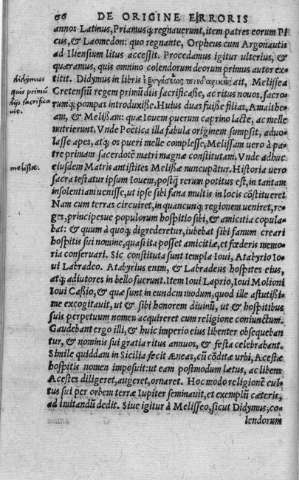 66 DE ORIGINE ERRORIS
annos Latinus, Priamusq́; regnauerunt, item patres eorum Pi
cus, & Laomedon: quo regnante, Orpheus cum Argonautis
ad Iliensium litus accessit. Procedamus igitur ulterius, &
quæramus, quis omnino colendorum deorum primus autor ex
didymus
titit. Didymus in libris ait, Melisseũ
quis primũ
Cretensiũ regem primũ dijs sacrificasse, ac ritus nouos, sacro-
dijs sacrifica
rumq́; pompas introduxisse. Huius duas fuisse filias, Amalthe-
uit.
am, & Melissam: quæ Iouem puerum caprino lacte, ac melle
nutrierunt. Vnde Poëtica illa fabula originem sumpsit, aduo-
lasse apes, atq́; os pueri melle complesse, Melissam uero à pa-
tre primam sacerdotẽ matri magnæ constitutam. Vnde adhuc
melissæ.
eiusdem Matris antistites Melissæ nuncupãtur. Historia uero
sacra testatur ipsum Iouem, postq̃ rerum potitus est, in tantam
insolentiam uenisse, ut ipse sibi fana multis in locis cõstitueret.
Nam cum terras circuiret, in quamcunq; regionem uenisset, re-
ges, principesue populorum hospitio sibi, & amicitia copula-
bat: & quum à quoq; digrederetur, iubebat sibi fanum creari
hospitis sui nomine, quasi ita posset amicitiæ, et fœderis memo
ria conseruari. Sic constituta sunt templa Ioui, Atabyrio Io-
ui Labradeo. Atabyrius enim, & Labradeus hospites eius,
atq́; adiutores in bello fuerunt. Item Ioui Laprio, Ioui Molioni
Ioui Cassio, & quæ sunt in eundem modum, quod ille astutissi-
me excogitauit, ut & sibi honorem diuinũ, ut & hospitibus
suis perpetuum nomen acquireret cum religione coniunctum.
Gaudebant ergo illi, & huic imperio eius libenter obsequeban
tur, & nominis sui gratia ritus annuos, & festa celebrabant.
Simile quiddam in Sicilia fecit Aeneas, cũ cõditæ urbi, Acestæ
hospitis nomen imposuit: ut eam postmodum lætus, ac libens
Acestes diligeret, augeret, ornaret. Hoc modo religionẽ cul-
tus sui per orbem terræ Iupiter seminauit, et exemplũ cæteris,
ad imitandũ dedit. Siue igitur à Melisseo, sicut Didymus, co-
lendorum